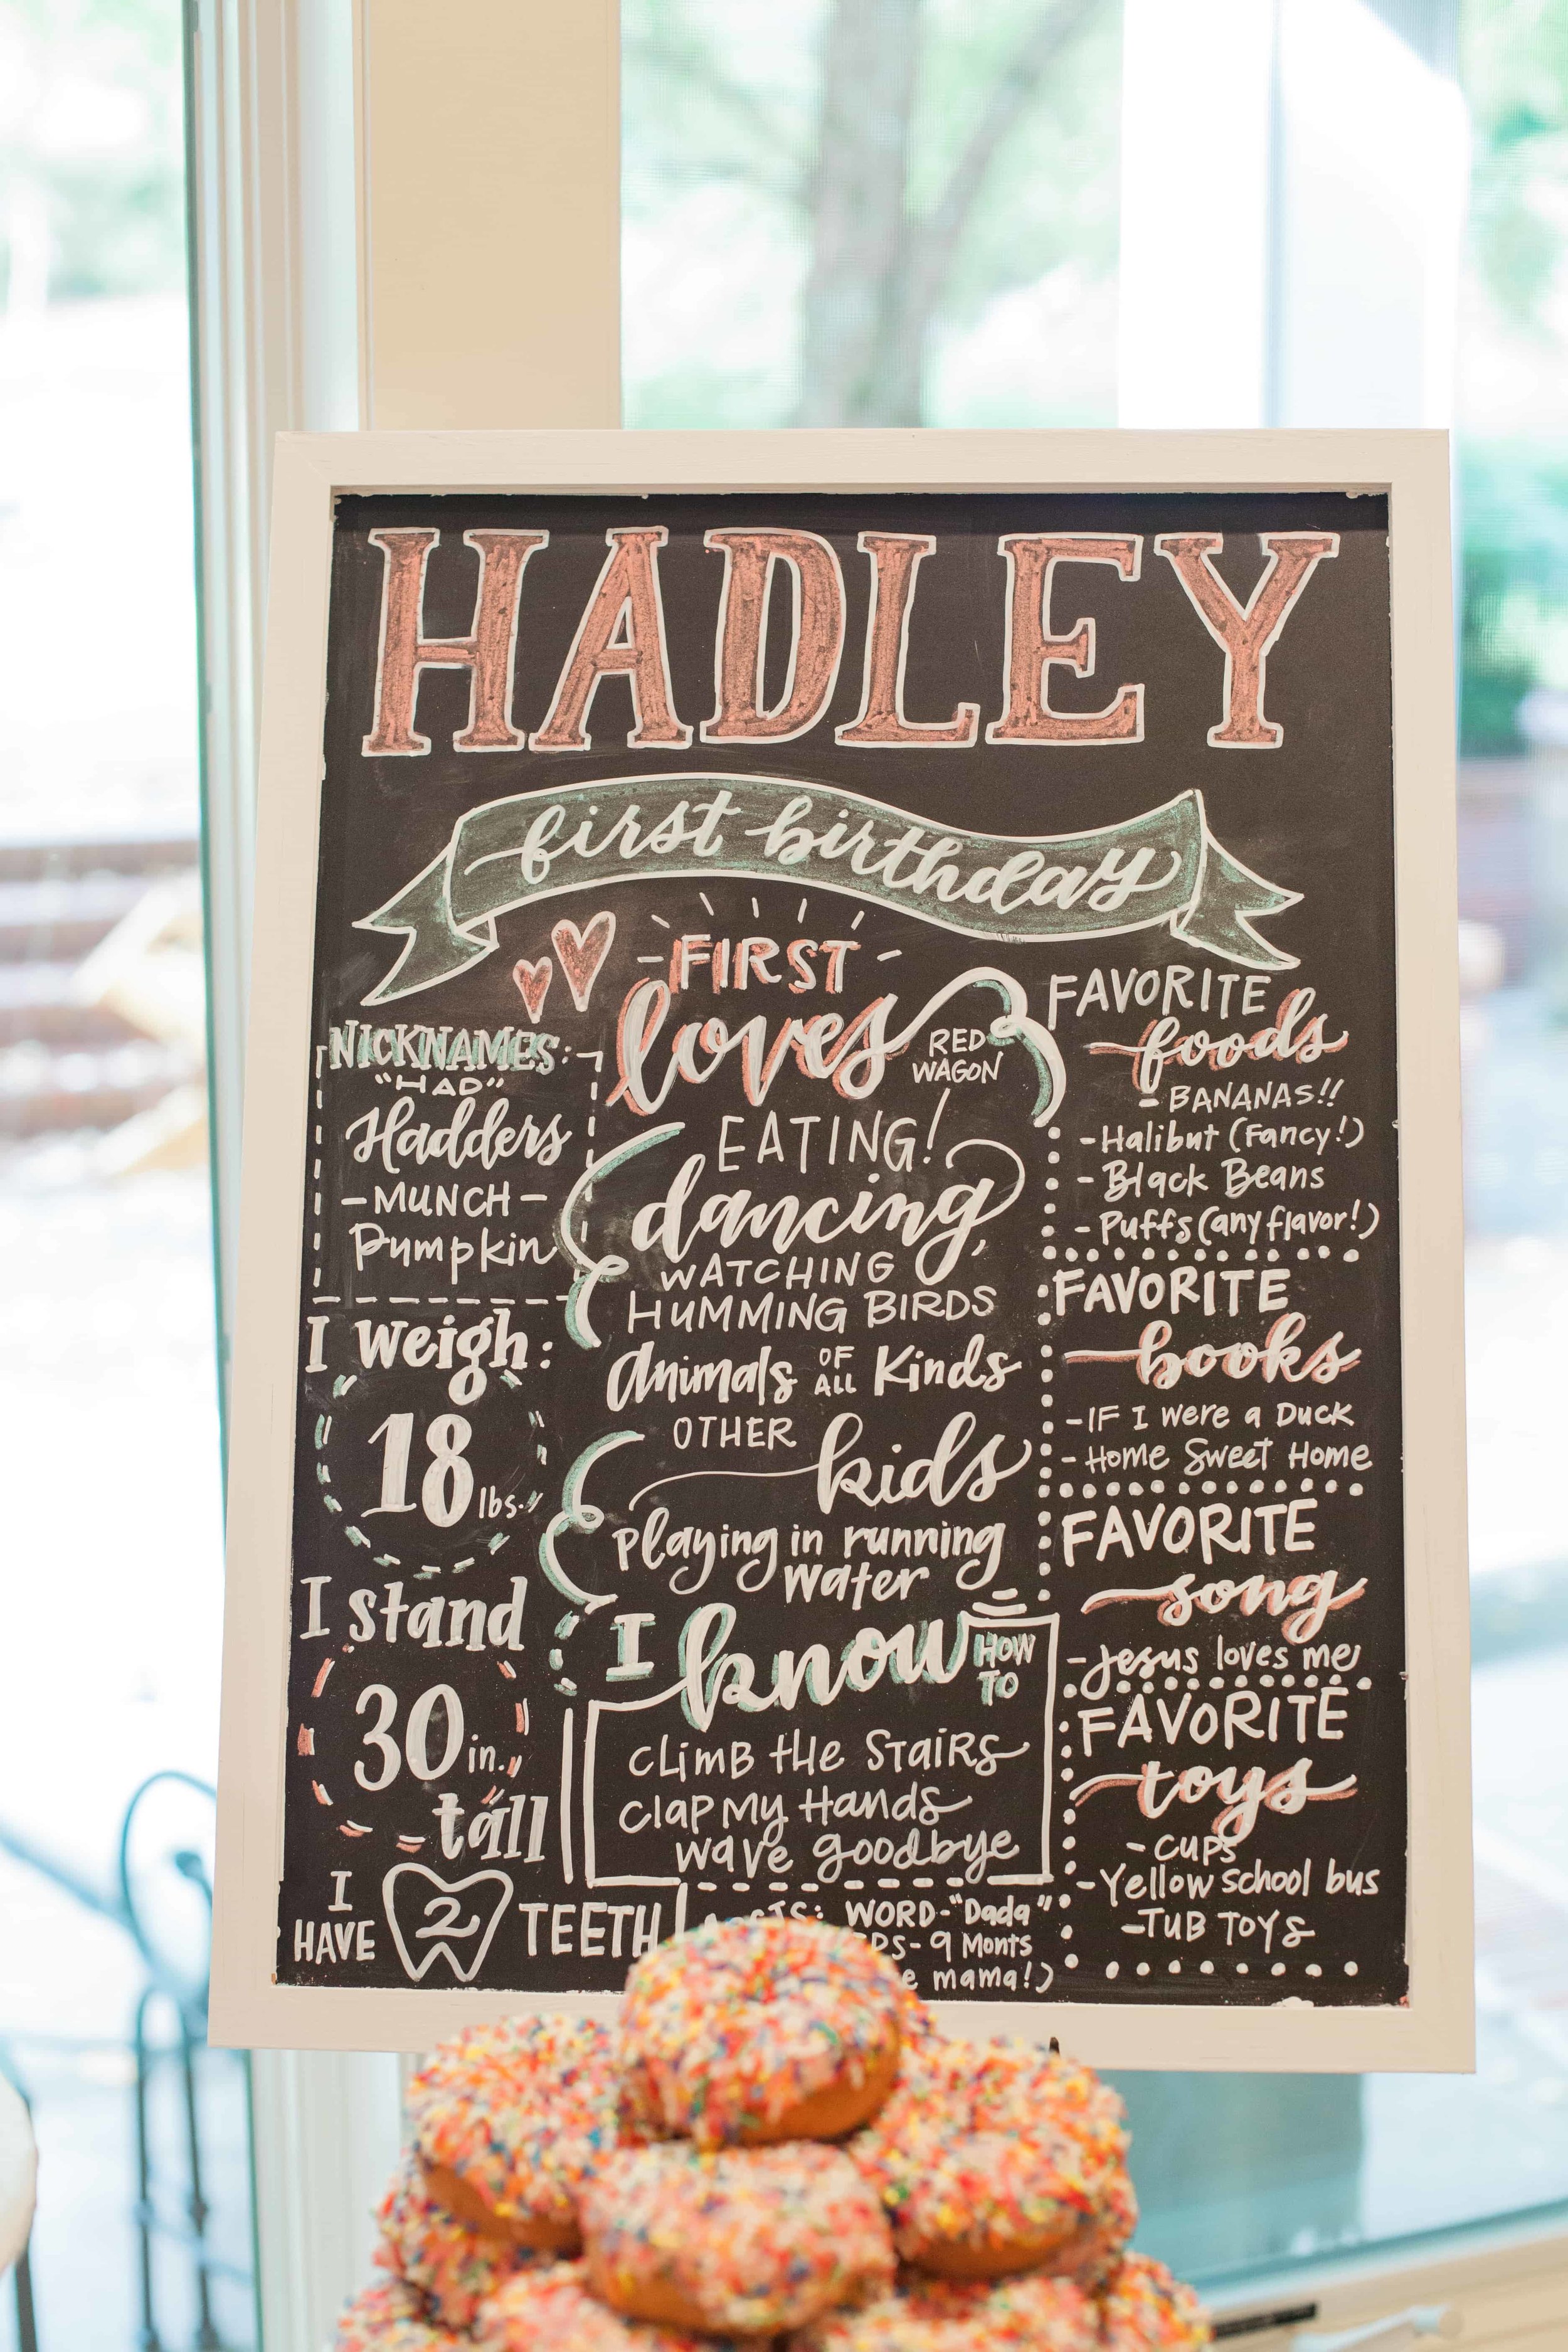 HADLEY
first birthday
NICKNAMES:
"HAD"
Hadders
-MUNCH-
Pumpkin
I weigh:
18 lbs.
I stand
30 in.
tall
I HAVE 2 TEETH
-FIRST-
loves
RED
WAGON
EATING!
dancing,
WATCHING
HUMMING BIRDS
Animals OF ALL Kinds
OTHER kids
Playing in running
water
I know HOW TO
climb the stairs
clap my hands
wave goodbye
WORD-"Dada"
9 Monts
mama!)
FAVORITE
foods
- BANANAS!!
- Halibut (Fancy!)
- Black Beans
- Puffs (any flavor!)
FAVORITE
books
- IF I were a Duck
- Home Sweet Home
FAVORITE
song
- Jesus loves me
FAVORITE
toys
- CUPS
- Yellow school bus
- TUB TOYS